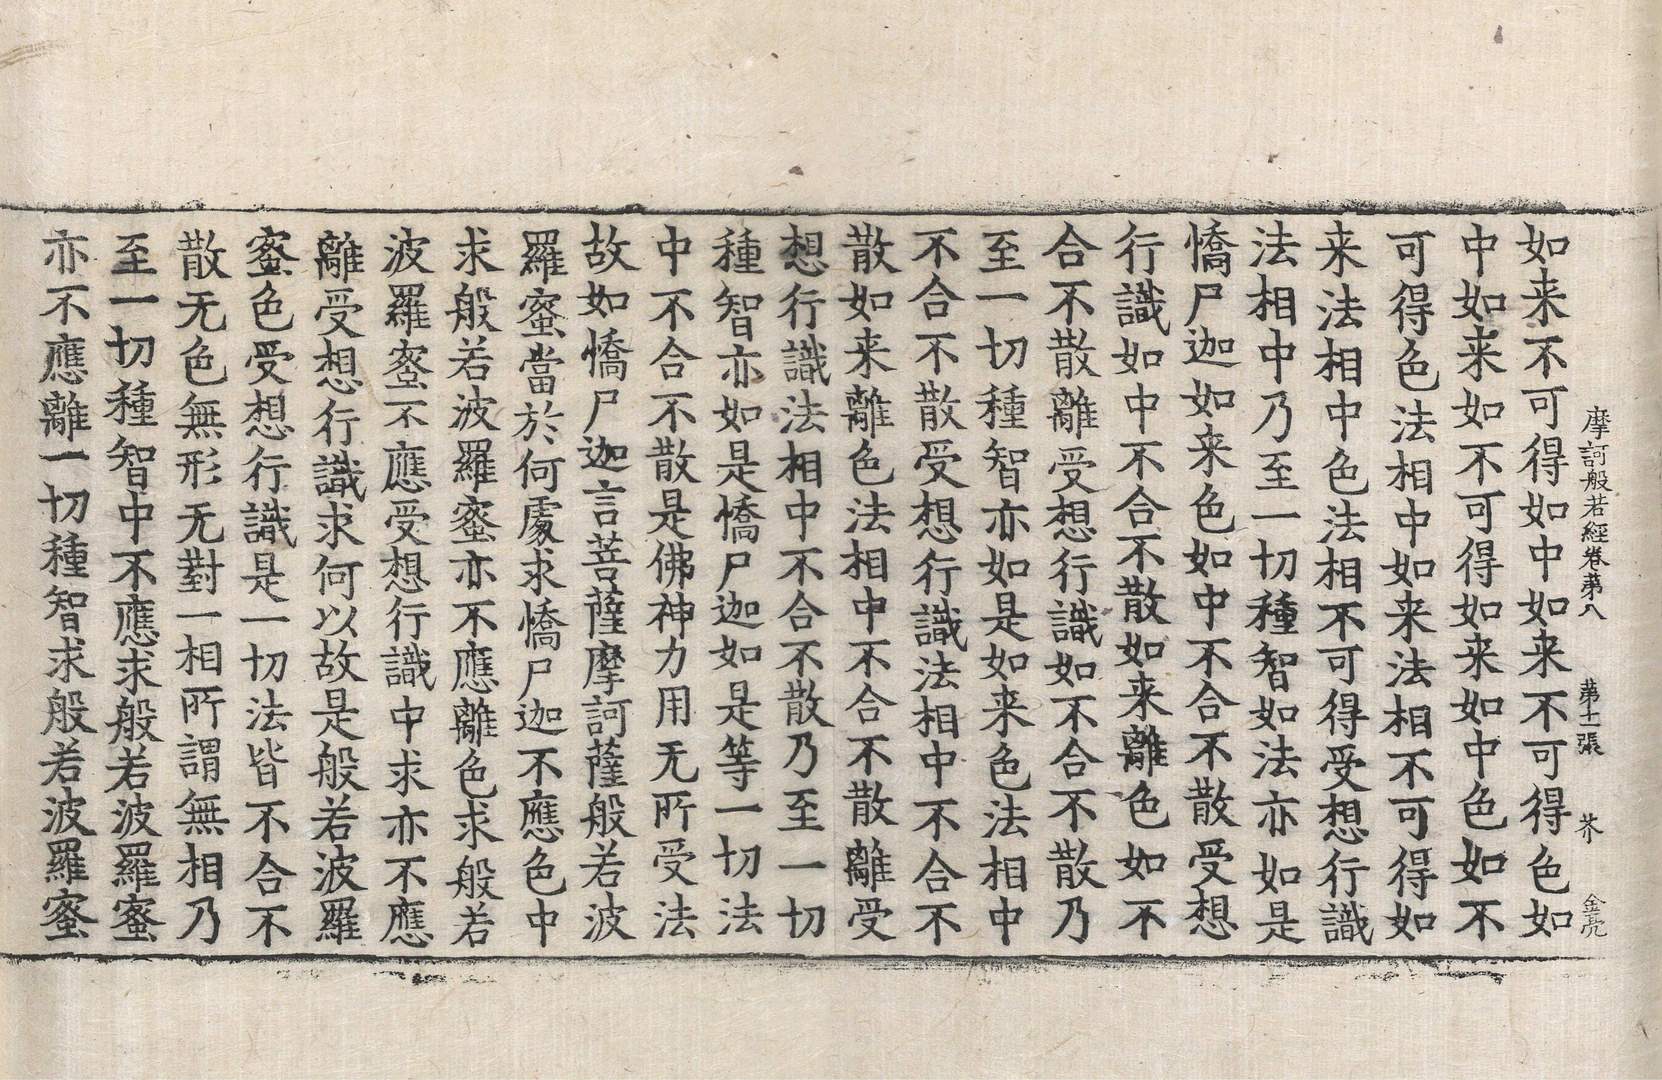 摩訶般若經卷第八 第十一張 芥 金亮
如来不可得如中如来不可得色如
中如来如不可得如来如中色如不
可得色法相中如来法相不可得如
来法相中色法相不可得受想行識
法相中乃至一切種智如法亦如是
憍尸迦如来色如中不合不散受想
行識如中不合不散如来離色如不
合不散離受想行識如不合不散乃
至一切種智亦如是如来色法相中
不合不散受想行識法相中不合不
散如来離色法相中不合不散離受
想行識法相中不合不散乃至一切
種智亦如是憍尸迦如是等一切法
中不合不散是佛神力用无所受法
故如憍尸迦言菩薩摩訶薩般若波
羅蜜當於何處求憍尸迦不應色中
求般若波羅蜜亦不應離色求般若
波羅蜜不應受想行識中求亦不應
離受想行識求何以故是般若波羅
蜜色受想行識是一切法皆不合不
散无色無形无對一相所謂無相乃
至一切種智中不應求般若波羅蜜
亦不應離一切種智求般若波羅蜜